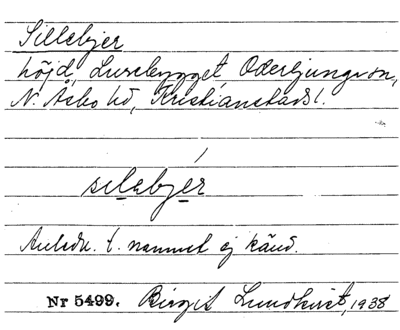 Sillebjer
höjd, Lursbygget, Oderljunga sn,
N. Åsbo hd, Kristianstads l.
silebjer
Anledn. t. namnet ej känd.
Nr 5499. Birgit Lundkvist, 1938